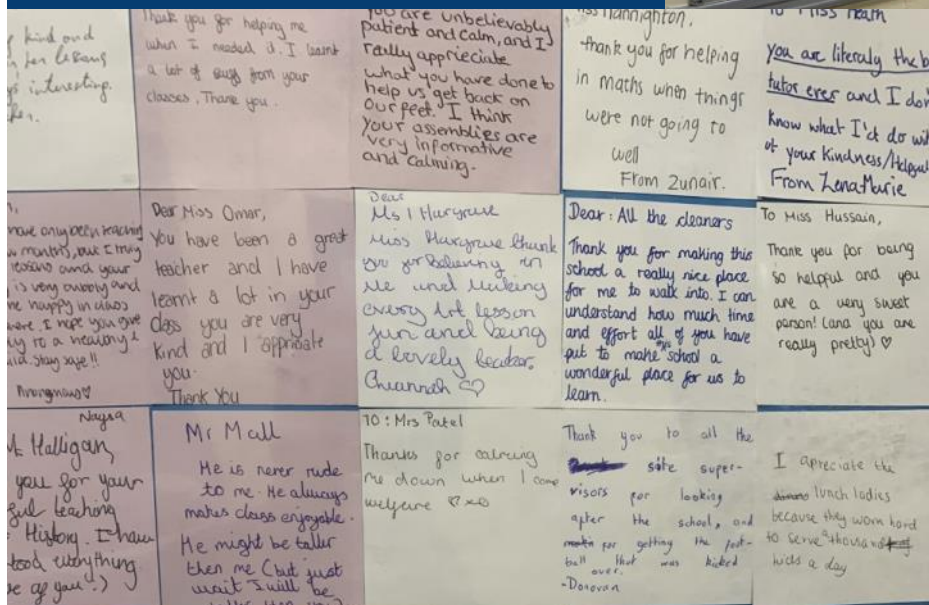 kind and
interesting.
Thank you for helping me
when I needed it. I learnt
a lot of from your
classes. Thank you.
you are unbelievably
patient and calm, and I
really appriciate
what you have done to
help us get back on
our feet. I think
your assemblies are
very informative
and calming.
thank you for helping
in maths when things
were not going to
well
From Zunair.
To Miss Heath
you are literaly the
tutor ever and I
know what I'd do
of your kindness/
From
have only been teaching
months, but I truly
and your
is very bubbly and
happy in class
I hope you give
to a healthy
Stay safe!!
Dear Miss Omar,
You have been a great
teacher and I have
learnt a lot in your
class you are very
kind and I
you.
Thank You
Dear
Ms I Hargrave
Miss Hargrave thank
you for believing in
me and making
every Art lesson
fun and being
a lovely teacher.
Dear: All the cleaners
Thank you for making this
school a really nice place
for me to walk into. I can
understand how much time
and effort all of you have
put to make this school a
wonderful place for us to
learn.
To Miss Hussain,
Thank you for being
so helpful and you
are a very sweet
person! (and you are
really pretty) ♡
Halligan,
you for your
teaching
History. I have
everything.
of you!)
Mr Mall
He is never rude
to me. He always
makes class enjoyable.
He might be taller
then me (but just
wait I will be
TO: Mrs Patel
Thanks for calming
me down when I come
welfare
Thank you to all the
site super-
visors for looking
after the school, and
for getting the foot-
ball that was kicked
over.
-Donovan
I apreciate the
lunch ladies
because they work hard
to serve a thousand
kids a day